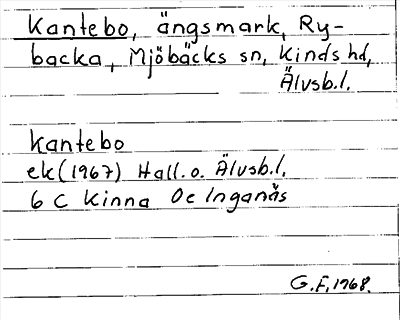 Kantebo, ängsmark, Ry-
backa, Mjöbäcks sn, Kinds hd,
Älvsb.l.
Kantebo
ek (1967) Hall. o. Älvsb.l.
6 C Kinna Oc Inganäs
G.F. 1968.